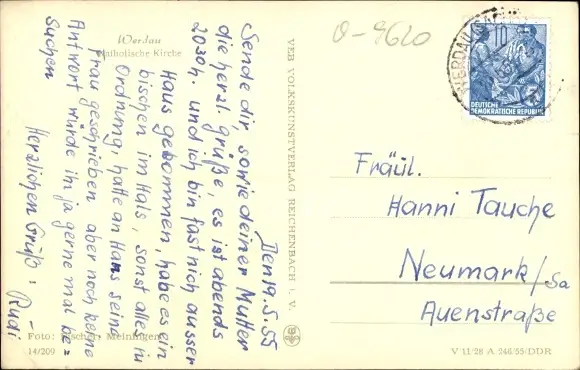 Werdau
Katholische Kirche
Den 19.5.55
Sende dir, sowie deiner Mutter
die herzl. Grüße, es ist abends
2030h. und ich bin fast nich ausser
Haus gekommen, habe es ein
bischen im Hals, sonst alles in
Ordnung, hatte an Hans seine
Frau geschrieben aber noch keine
Antwort würde ihn ja gerne mal be=
suchen
Herzlichen Gruß:-
Rudi
Foto: Escher, Meiningen
14/209
VEB VOLKSKUNSTVERLAG REICHENBACH i. V.
O-9620
WERDAU
10
DEUTSCHE
DEMOKRATISCHE REPUBLIK
Fräul.
Hanni Tauche
Neumark/Sa
Auenstraße
V 11/28 A 246/55/DDR